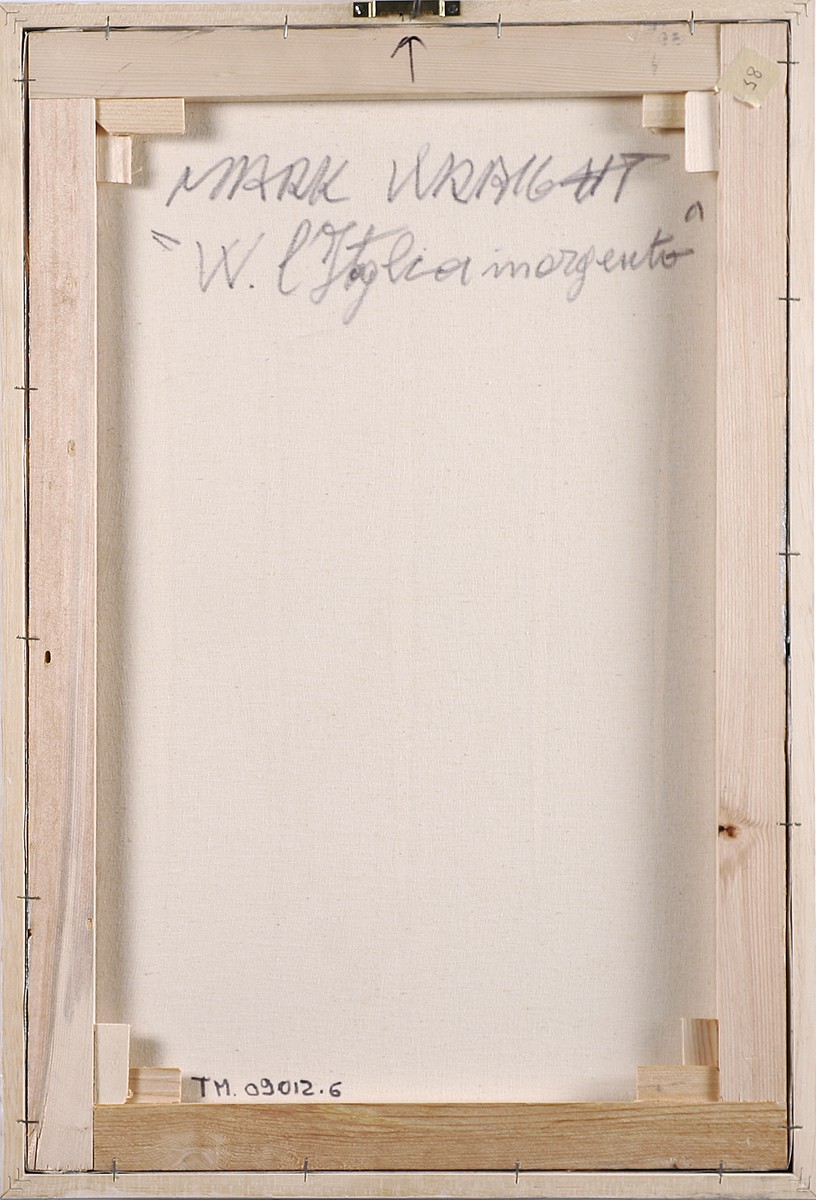 38
MARK WRAIGHT
"W. l'Italia in argento"
TM. 09012.6